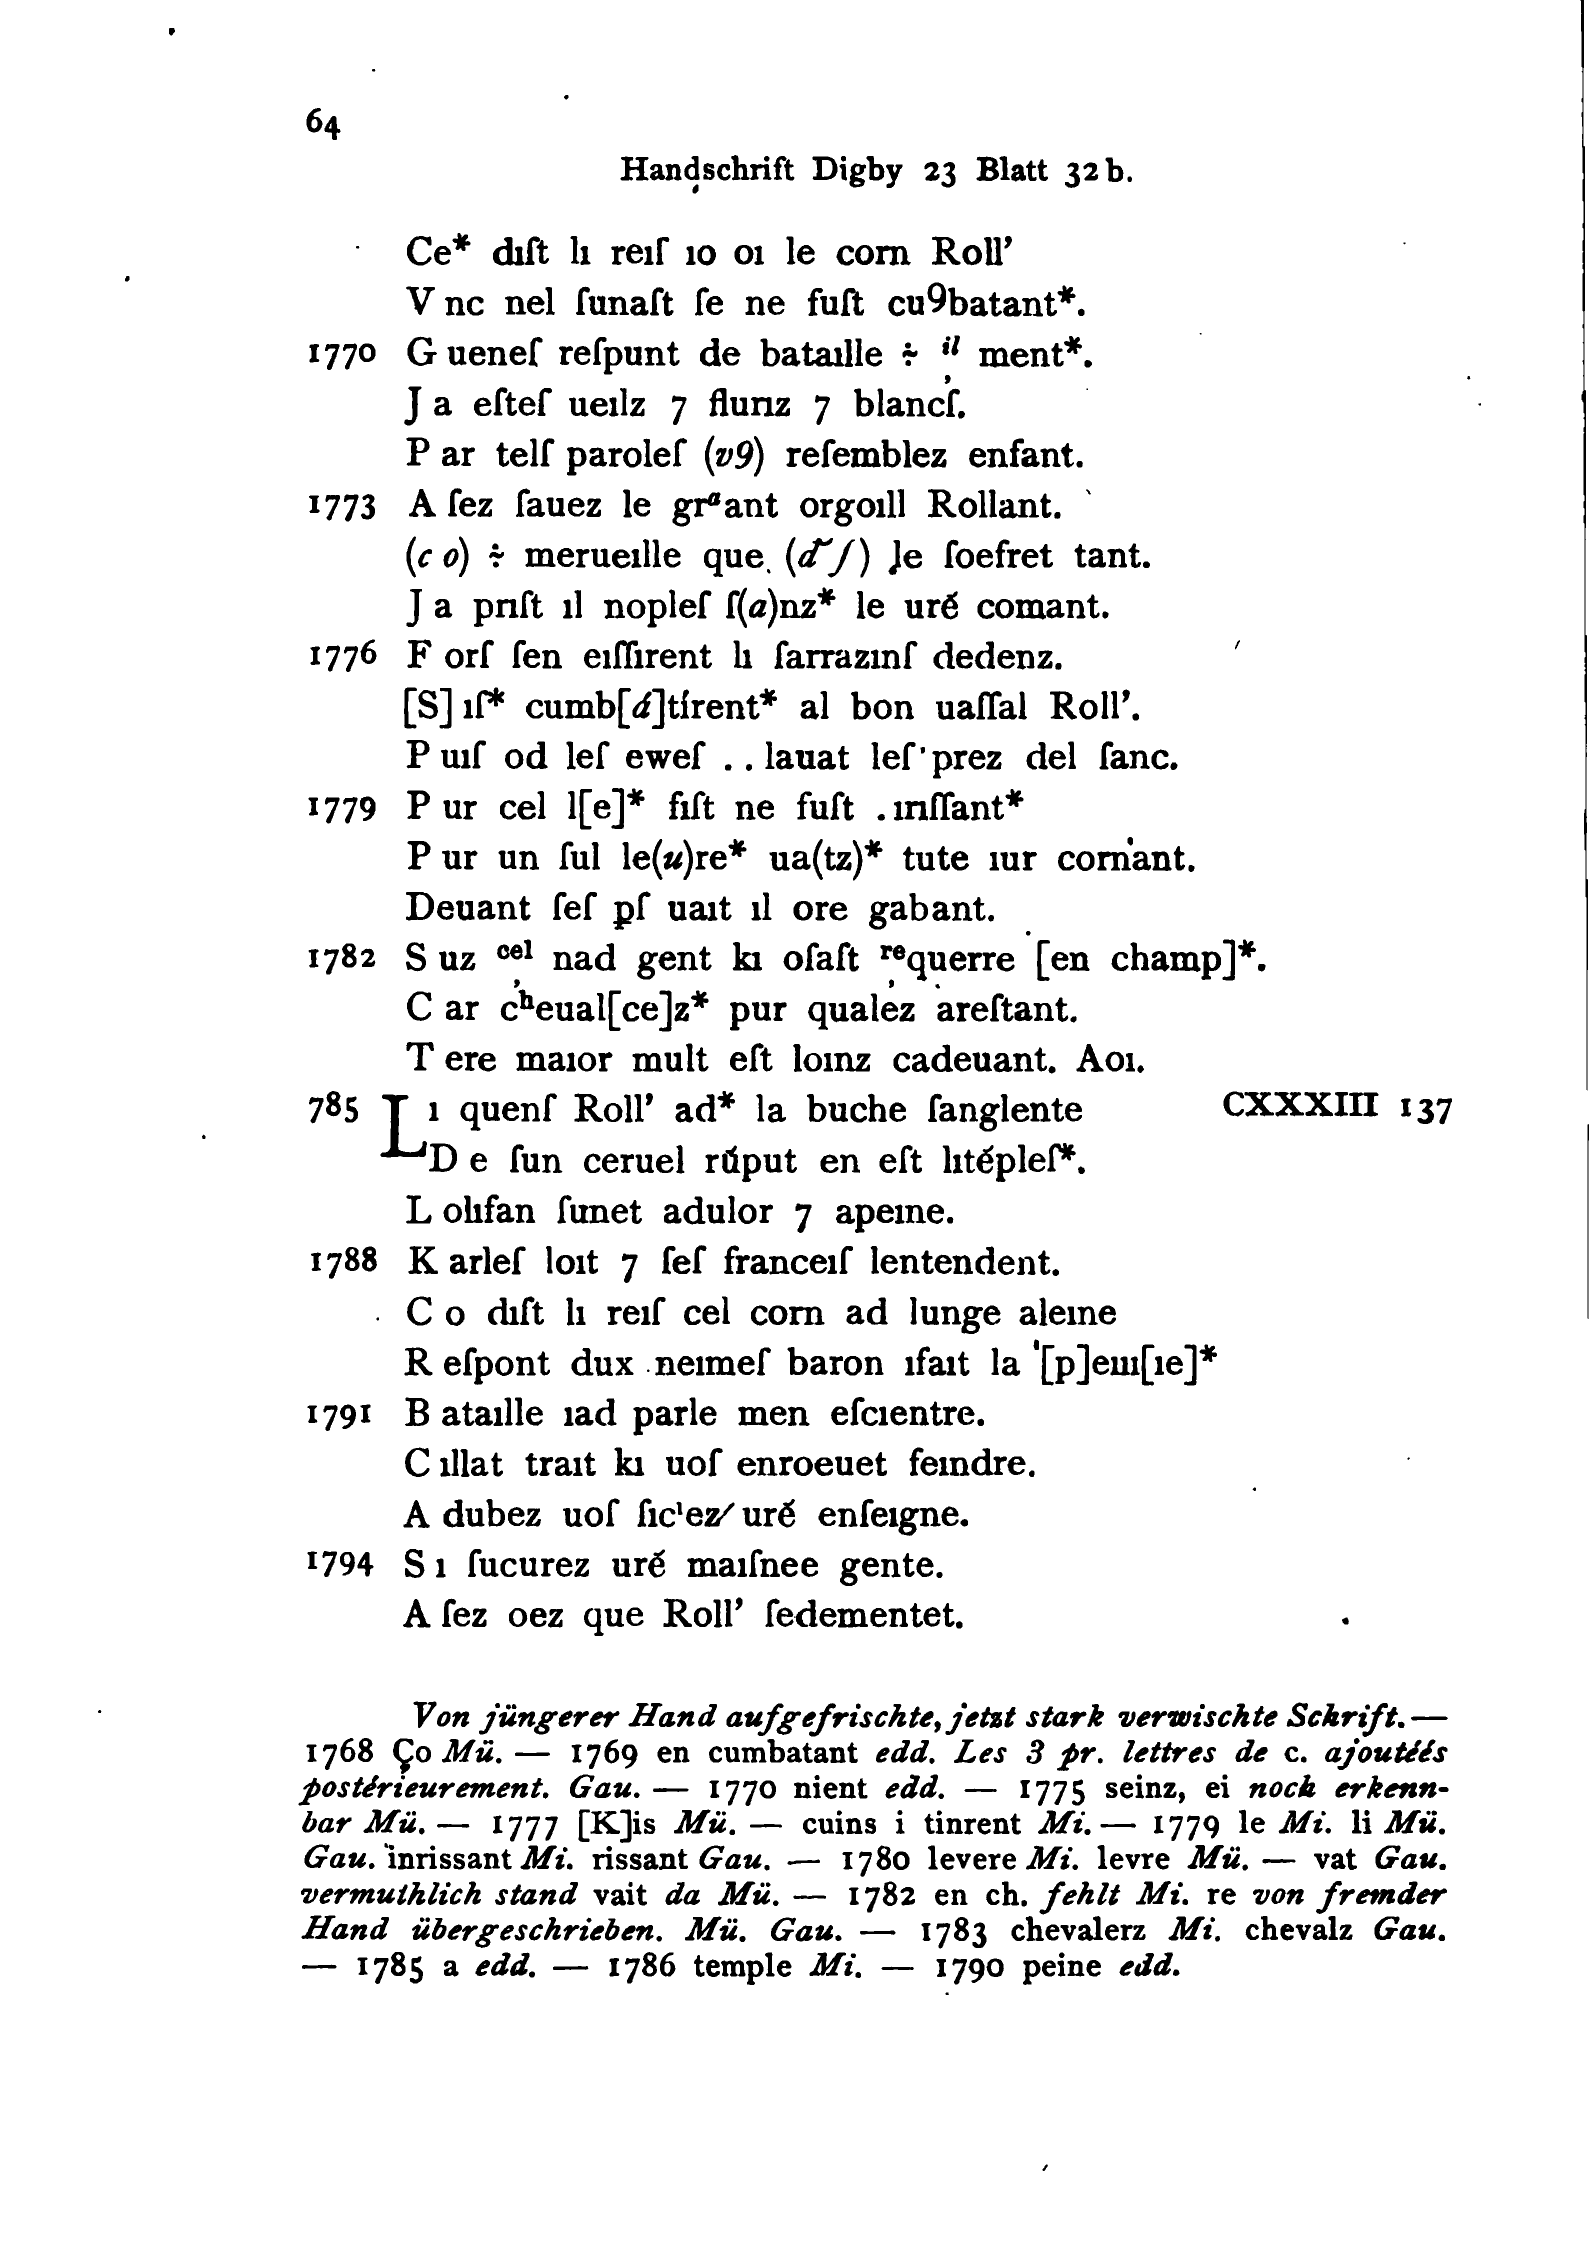 64
Handschrift Digby 23 Blatt 32b.
Ce* dıſt lı reıſ ıo oı le corn Roll’
V nc nel ſunaſt ſe ne fuſt cu9batant*.
1770 G ueneſ reſpunt de bataılle ÷ il ment*.
J a eſteſ ueılz 7 flurız 7 blancſ.
P ar telſ paroleſ (v9) reſemblez enfant.
1773 A ſez ſauez le grªant orgoıll Rollant.
(c o) ÷ merueılle que (d̃ ſ) le ſoefret tant.
J a prıſt ıl nopleſ ſ(a)nz* le uré comant.
1776 F orſ ſen eıſſırent lı ſarrazınſ dedenz.
[S] ıſ* cumb[á]tírent* al bon uaſſal Roll’.
P uıſ od leſ eweſ .. lauat leſ prez del ſanc.
1779 P ur cel l[e]* fıſt ne fuſt . ırıſſant*
P ur un ſul le(u)re* ua(tz)* tute ıur cornant.
Deuant ſeſ pſ uaıt ıl ore gabant.
1782 S uz cel nad gent kı oſaſt requerre [en champ]*.
C ar cheual[ce]z* pur qualez areſtant.
T ere maıor mult eſt loınz cadeuant. Aoı.
785 L ı quenſ Roll’ ad* la buche ſanglente CXXXIII 137
D e ſun ceruel rúput en eſt lıtépleſ*.
L olıfan ſunet adulor 7 apeıne.
1788 K arleſ loıt 7 ſeſ franceıſ lentendent.
C o dıſt lı reıſ cel corn ad lunge aleıne
R eſpont dux neımeſ baron ıfaıt la [p]euı[ıe]*
1791 B ataılle ıad parle men eſcıentre.
C ıllat traıt kı uoſ enroeuet feındre.
A dubez uoſ ſıcˡez/ uré enſeıgne.
1794 S ı ſucurez uré maıſnee gente.
A ſez oez que Roll’ ſedementet.
Von jüngerer Hand aufgefrischte, jetzt stark verwischte Schrift. —
1768 Ço Mü. — 1769 en cumbatant edd. Les 3 pr. lettres de c. ajoutéés
postérieurement. Gau. — 1770 nient edd. — 1775 seinz, ei noch erkenn-
bar Mü. — 1777 [K]is Mü. — cuins i tinrent Mi. — 1779 le Mi. li Mü.
Gau. inrissant Mi. rissant Gau. — 1780 levere Mi. levre Mü. — vat Gau.
vermuthlich stand vait da Mü. — 1782 en ch. fehlt Mi. re von fremder
Hand übergeschrieben. Mü. Gau. — 1783 chevalerz Mi. chevalz Gau.
— 1785 a edd. — 1786 temple Mi. — 1790 peine edd.